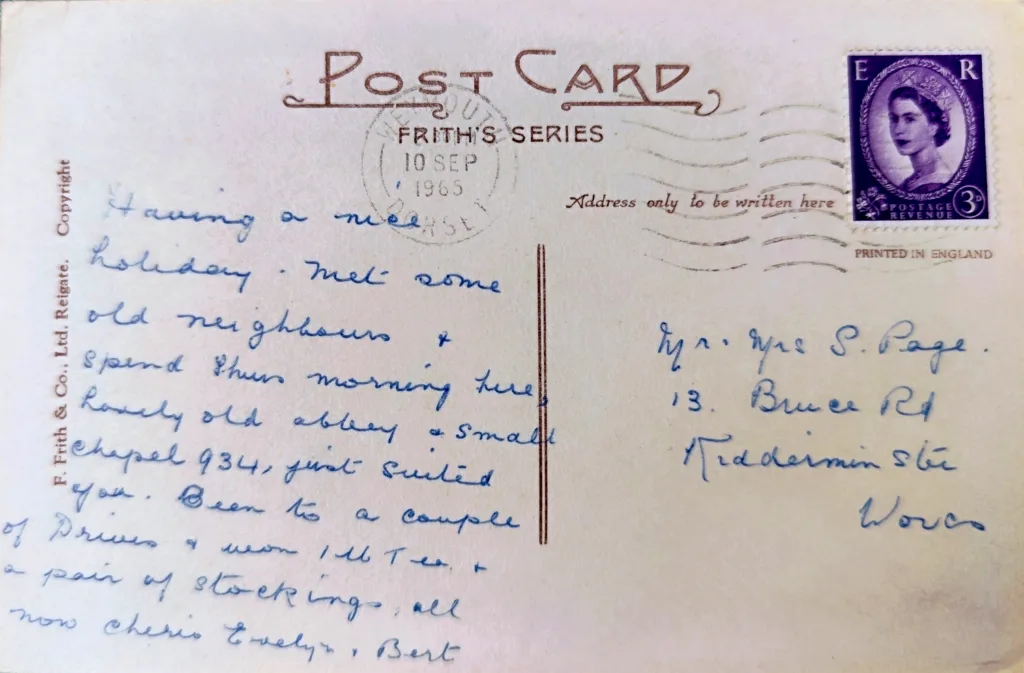 POST CARD
FRITH'S SERIES
WEYMOUTH
10 SEP
1965
DORSET
Address only to be written here
E R
POSTAGE
REVENUE
3D
PRINTED IN ENGLAND
F. Frith & Co., Ltd. Reigate. Copyright
Having a nice
holiday. Met some
old neighbours &
spend Thurs morning here,
Lovely old abbey & small
chapel 934, just suited
you. Been to a couple
of Drives & won 1 lb Tea, +
a pair of stockings, all
now cheris Evelyn, Bert
Mr. Mrs S. Page.
13. Bruce Rd
Kidderminster
Worcs